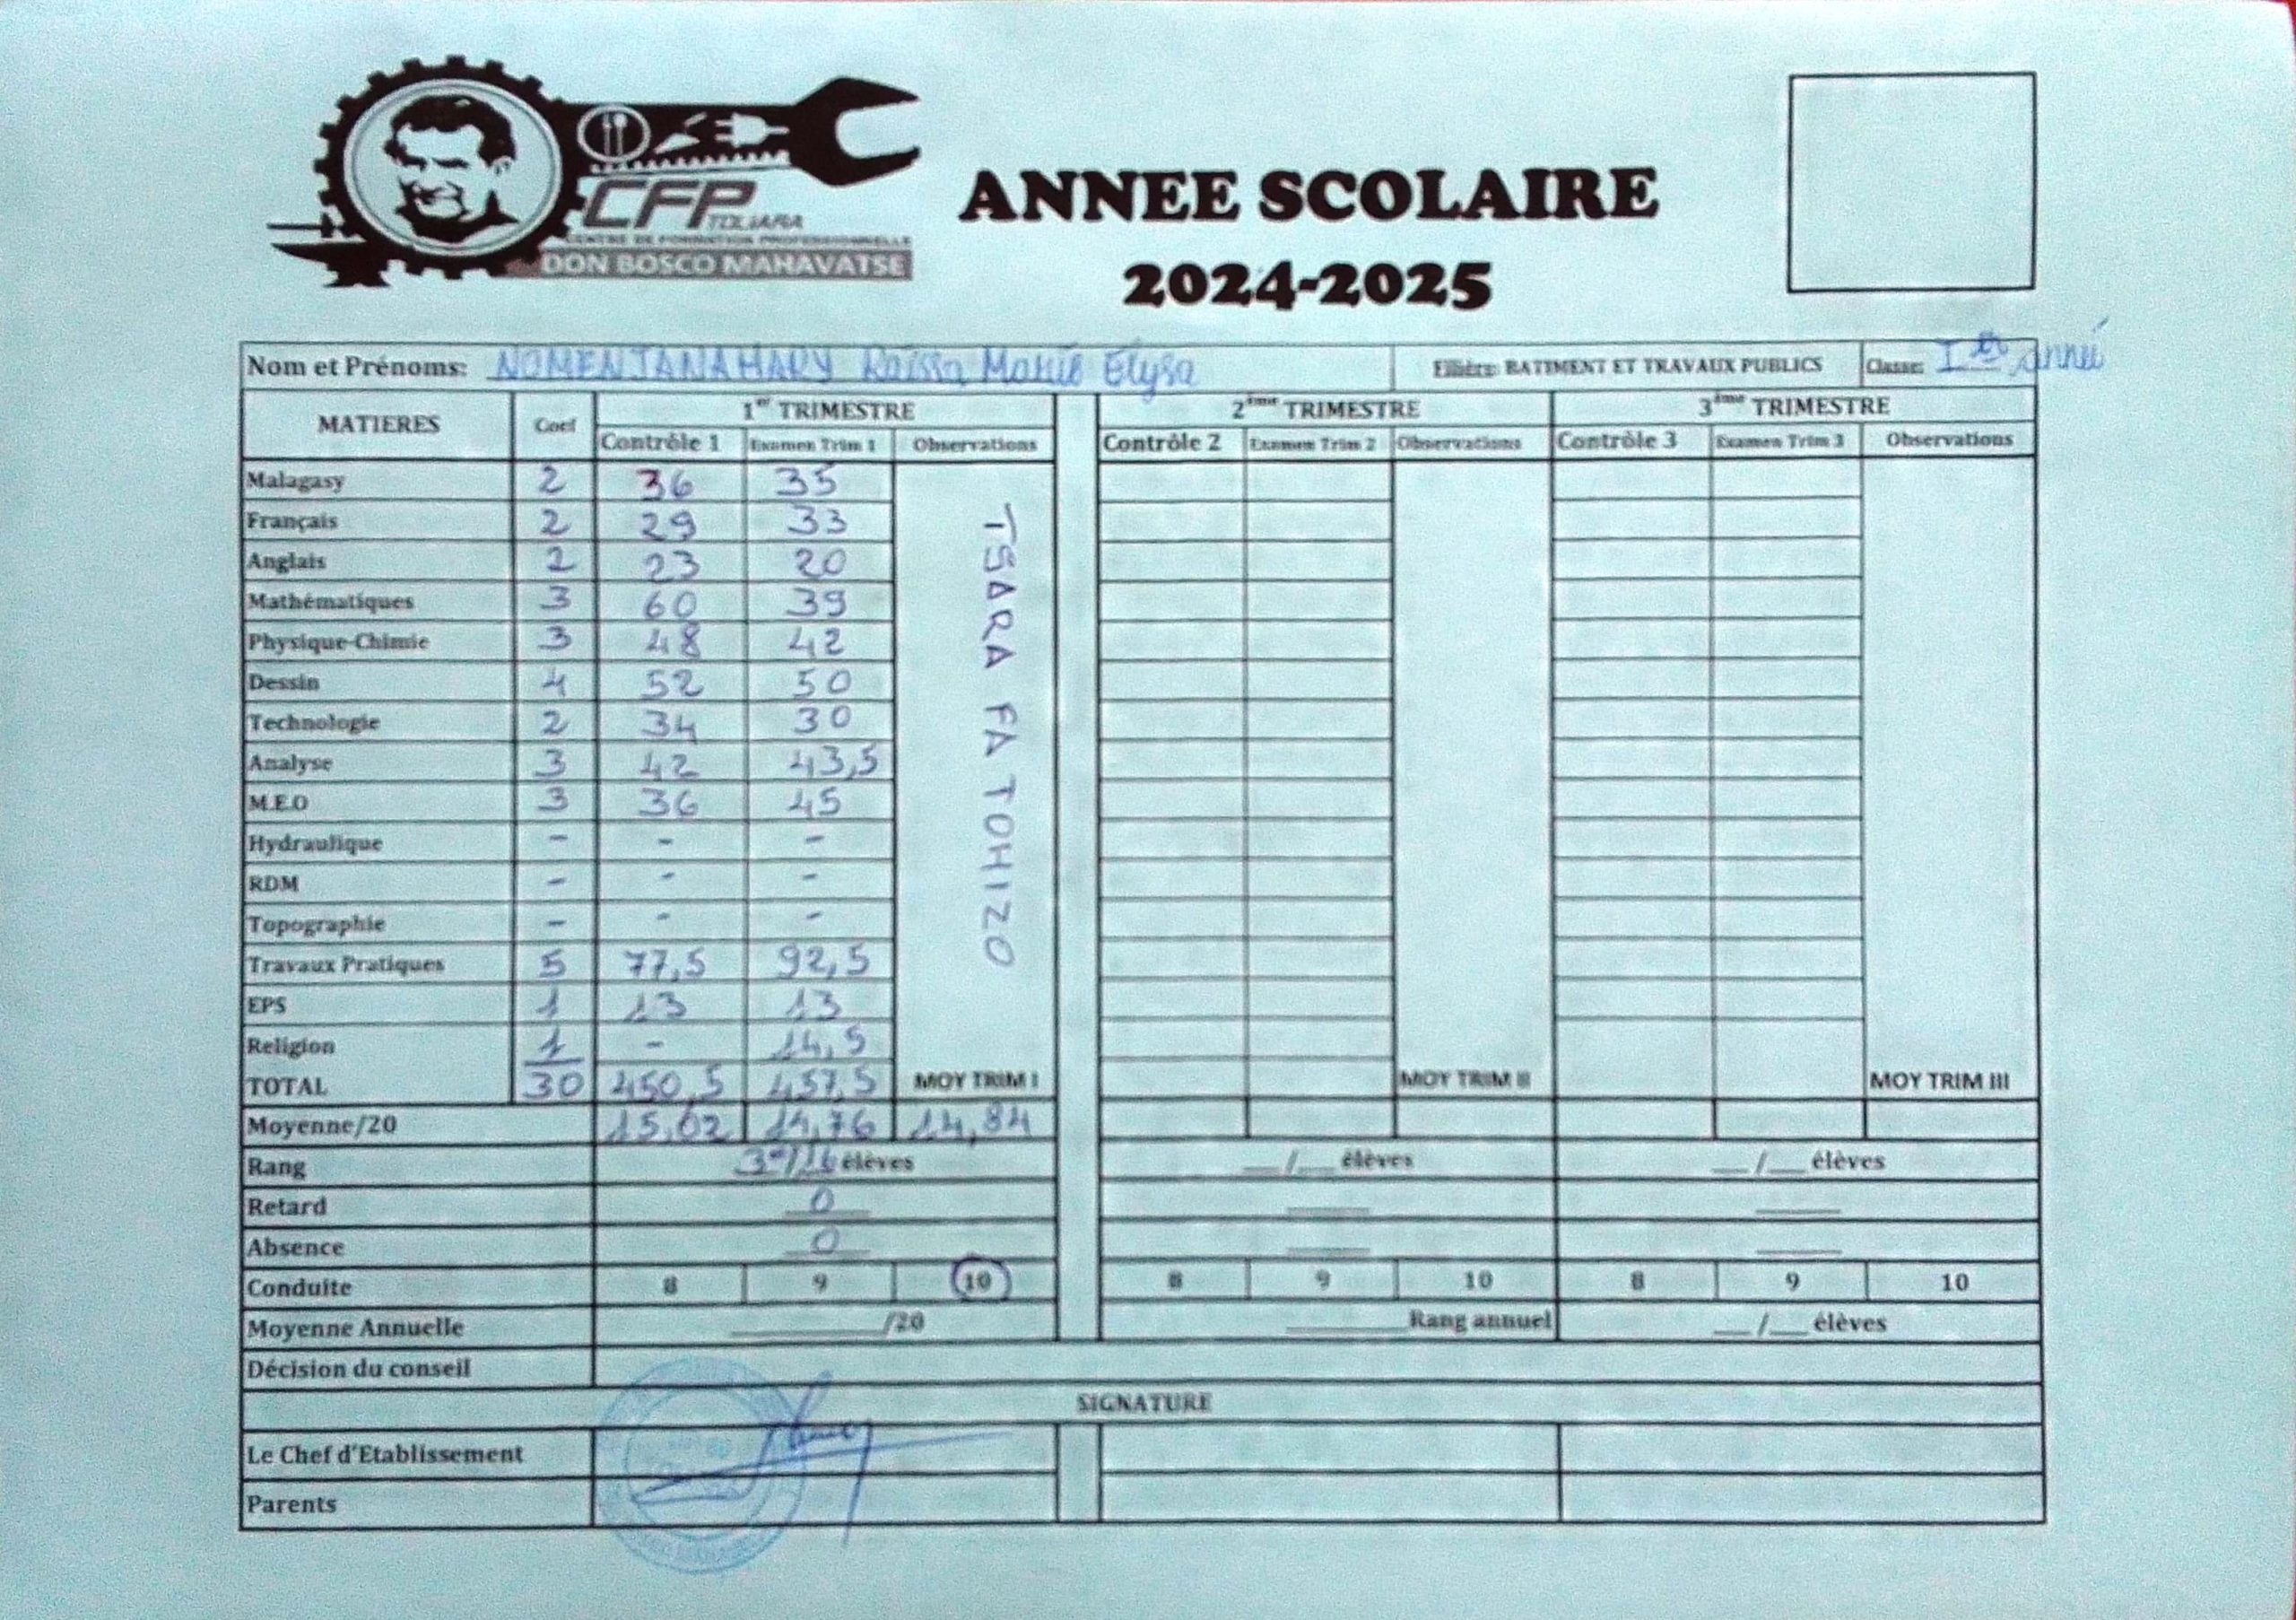 CFP
TOLIARA
CENTRE DE FORMATION PROFESSIONNELLE
DON BOSCO MAHAVATSE
ANNEE SCOLAIRE
2024-2025
Nom et Prénoms: NOMENJANAHARY Raïssa Marie Elysa Filière: BATIMENT ET TRAVAUX PUBLICS Classe: Ière anné
MATIERES Coef 1er TRIMESTRE 2ème TRIMESTRE 3ème TRIMESTRE
Contrôle 1 Examen Trim 1 Observations Contrôle 2 Examen Trim 2 Observations Contrôle 3 Examen Trim 3 Observations
Malagasy 2 36 35
Français 2 29 33
Anglais 2 23 20
Mathématiques 3 60 39
Physique-Chimie 3 48 42
Dessin 4 52 50
Technologie 2 34 30
Analyse 3 42 43,5
M.E.O 3 36 45
Hydraulique - - -
RDM - - -
Topographie - - -
Travaux Pratiques 5 77,5 92,5
EPS 1 13 13
Religion 1 - 14,5
TSARA FA TOHIZO
TOTAL 30 450,5 457,5 MOY TRIM I MOY TRIM II MOY TRIM III
Moyenne/20 15,02 14,76 14,84
Rang 3e/16 élèves __/__ élèves __/__ élèves
Retard 0
Absence 0
Conduite 8 9 10 8 9 10 8 9 10
Moyenne Annuelle ________/20 ________Rang annuel __/__ élèves
Décision du conseil
SIGNATURE
Le Chef d'Etablissement
Parents